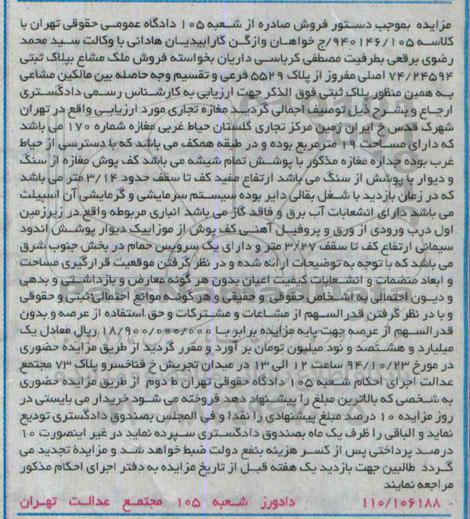 مزایده بموجب دستور فروش صادره از شعبه ۱۰۵ دادگاه عمومی حقوقی تهران با
کلاسه ۹۴۰۱۴۶/۱۰۵/ج خواهان وازگن گارابیدیان هادانی با وکالت سید محمد
رضوی برقعی بطرفیت مصطفی کرباسی داریان بخواسته فروش ملک مشاع بپلاک ثبتی
۷۴/۲۴۵۹۴ اصلی مفروز از پلاک ۵۵۲۹ فرعی و تقسیم وجه حاصله بین مالکین مشاعی
به همین منظور پلاک ثبتی فوق الذکر جهت ارزیابی به کارشناس رسمی دادگستری
ارجاع و بشرح ذیل توصیف اجمالی گردید مغازه تجاری مورد ارزیابی واقع در تهران
شهرک قدس خ ایران زمین مرکز تجاری گلستان حیاط غربی مغازه شماره ۱۷۰ می باشد
که دارای مساحت ۱۹ مترمربع بوده و در طبقه همکف می باشد که با دسترسی از حیاط
غرب بوده جداره مغازه مذکور با پوشش تمام شیشه می باشد کف پوش مغازه از سنگ
و دیوار با پوشش از سنگ می باشد ارتفاع مفید کف تا سقف حدود ۳/۱۴ متر می باشد
که در زمان بازدید با شغل بقالی دایر بوده سیستم سرمایشی و گرمایشی آن اسپیلت
می باشد دارای انشعابات آب برق و فاقد گاز می باشد انباری مربوطه واقع در زیرزمین
اول درب ورودی از ورق و پروفیل آهنی کف پوش از موزاییک دیوار پوشش اندود
سیمانی ارتفاع کف تا سقف ۳/۲۷ متر و دارای یک سرویس حمام در بخش جنوب شرق
می باشد که با توجه به توضیحات ارائه شده و در نظر گرفتن موقعیت قرارگیری مساحت
و ابعاد منضمات و انشعابات کیفیت اعیان بدون هر گونه معارض و بازداشتی و بدهی
و دیون احتمالی به اشخاص حقوقی و حقیقی و هر گونه موانع احتمالی ثبتی و حقوقی
و با در نظر گرفتن قدر السهم از مشاعات و مشترکات و حق استفاده از عرصه و بدون
قدر السهم از عرصه جهت پایه مزایده برابر با ۱۸/۹۰۰/۰۰۰/۰۰۰ ریال معادل یک
میلیارد و هشتصد و نود میلیون تومان بر آورد و مقرر گردید از طریق مزایده حضوری
در مورخ ۹۴/۱۰/۲۳ ساعت ۱۲ الی ۱۳ در میدان تجریش خ فناخسرو پلاک ۷۳ مجتمع
عدالت اجرای احکام شعبه ۱۰۵ دادگاه حقوقی تهران ط دوم از طریق مزایده حضوری
به شخصی که بالاترین مبلغ را پیشنهاد دهد فروخته می شود خریدار می بایستی در
روز مزایده ۱۰ درصد مبلغ پیشنهادی را نقدا و فی المجلس بصندوق دادگستری تودیع
نماید و الباقی را ظرف یک ماه بصندوق دادگستری سپرده نماید در غیر اینصورت ۱۰
درصد پرداختی پس از کسر هزینه بنفع دولت ضبط خواهد شد و مزایده تجدید می
گردد طالبین جهت بازدید یک هفته قبل از تاریخ مزایده به دفتر اجرای احکام مذکور
مراجعه نمایند
۱۱۰/۱۰۶۱۸۸ دادورز شعبه ۱۰۵ مجتمع عدالت تهران